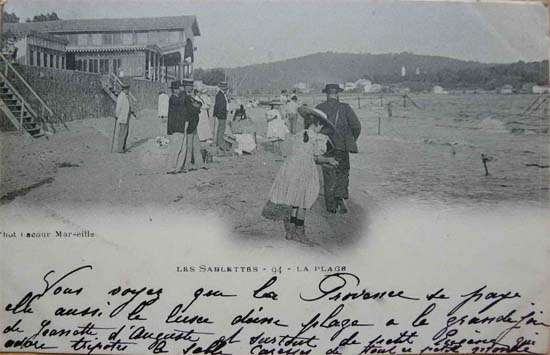 Phot Lacour Marseille
LES SABLETTES - 94 - LA PLAGE
Vous voyez que la Provence se paye
elle aussi le luxe d'une plage à la grande joie
de Jeannette d'Auguste et surtout de petit qui
adore tripoter le sable